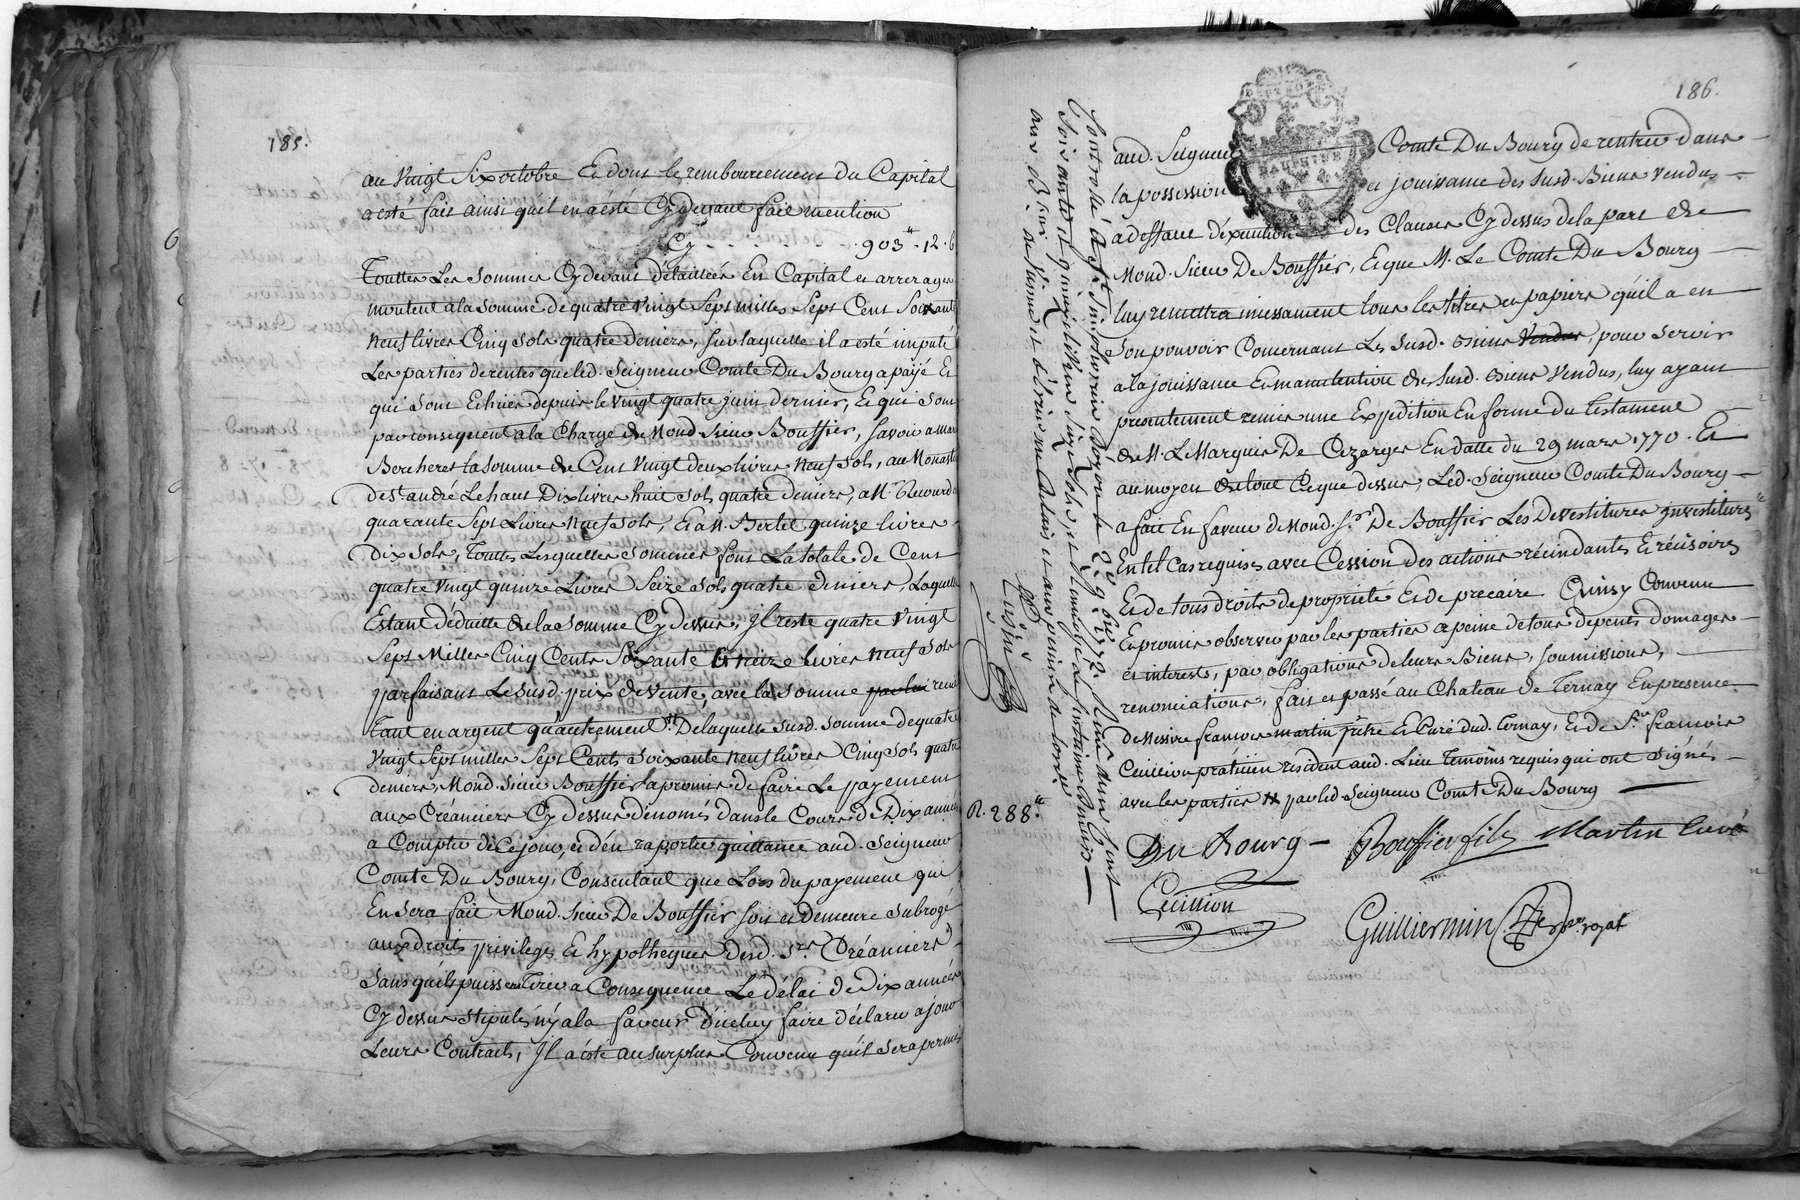 185.
au vingt six octobre Et dont le rembourcement du Capital
a esté fait ainsi quil en a esté Cy devant fait mention
Cy . . . . . 903# . 12 . 6
Touttes Les sommes Cy devant détaillées En Capital et arrerages
montent a la somme de quatre vingt Sept mille Sept Cent Soixante
neuf livres Cinq sols quatre deniers, sur laquelle il a esté imputé
Les parties de rentes que led. Seigneur Comte Du Bourg a payé Et
qui sont Echües depuis le vingt quatre juin dernier, Et qui sont
par consequent a la Charge de Mond. Sieur Bouffier, savoir a
Bercheret la somme de Cent vingt deux livres neuf sols, au Monast
de St. andré Le haut Dix livres huit sols quatre deniers, a Mr.
quarante Sept Livres neuf sols, Et a M. Bertet quinze livres
Dix sols, Touttes Lesquelles sommes font La totale de Cent
quatre vingt quinze Livres Seize sols quatre deniers, Laquelle
Estant déduitte de la somme Cy dessus, Il reste quatre vingt
Sept Mille Cinq Cents Soixante treize livres neuf sols
parfaisant Le susd. prix de vente, avec la somme par lui
Tant en argent qu'autrement De laquelle susd. somme de quatre
vingt Sept mille Sept Cents soixante neuf livres Cinq sols quatre
deniers, Mond. Sieur Bouffier a promis de faire Le payement
aux Créanciers Cy dessus dénomés dans le Cours de Dix années
a Compter de Ce jour, et d'en raporter quittance aud. Seigneur
Comte Du Bourg, Consentant que Lors du payement qui
En sera fait Mond. Sieur De Bouffier soit et demeure subrogé
aux droits privileges Et hypotheques desd. Srs. Créanciers
Sans quils puissent Tirer a Consequence Le délai de Dix années
Cy dessus stipulés ny a la faveur d'iceluy faire déclarer a jour
Leurs Contrats, Il a esté au surplus Convenu qu'il sera permis
186.
aud. Seigneur Comte Du Bourg de rentrer dans
la possession et jouissance des susd. Biens vendus
a deffaut d'éxécution des Clauses Cy dessus de la part de
Mond. Sieur De Bouffier, Et que M. Le Comte Du Bourg
luy remettra incessament tous les titres et papiers qu'il a en
Son pouvoir Concernant Les susd. biens vendus, pour servir
a la jouissance Et manutention des susd. biens vendus, luy ayant
presentement remis une Expedition En forme du testament
de M. Le Marquis De Cezarges En datte du 29 mars 1770. Et
au moyen de tout Ce que dessus, Led. Seigneur Comte Du Bourg
a fait En faveur de Mond. Sr. De Bouffier Les Devestitures investitures
En tel Cas requises avec Cession des actions récindantes Et récisoires
Et de tous droits de proprieté Et de precaire Ainsy Convenu
Et promis observer par les parties a peine de tous depents domages
et interests, par obligations de leurs Biens, soumissions,
renonciations, fait et passé au Chateau de Ternay En presence
de Messire françois martin prêtre Et Curé dud. Ternay, Et de Sr. françois
Cuission praticien résident aud. Lieu Temoins requis qui ont Signés
avec les parties par led. Seigneur Comte Du Bourg
Du Bourg Bouffier fils Martin Curé
Cuission
Guilliermin Nre royal
DAUPHINE
Controllé a St. Simphorien d'ozon le 29 9bre 1772. Reçu deux Cent
Soixante et quinze livres six sols, et
R. 288#